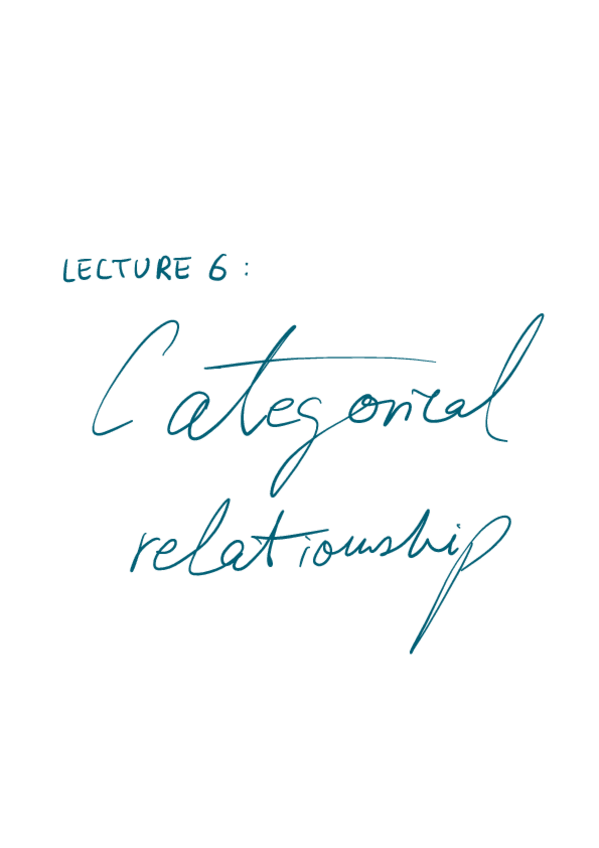 LECTURE 6 :
Categorical
relationship